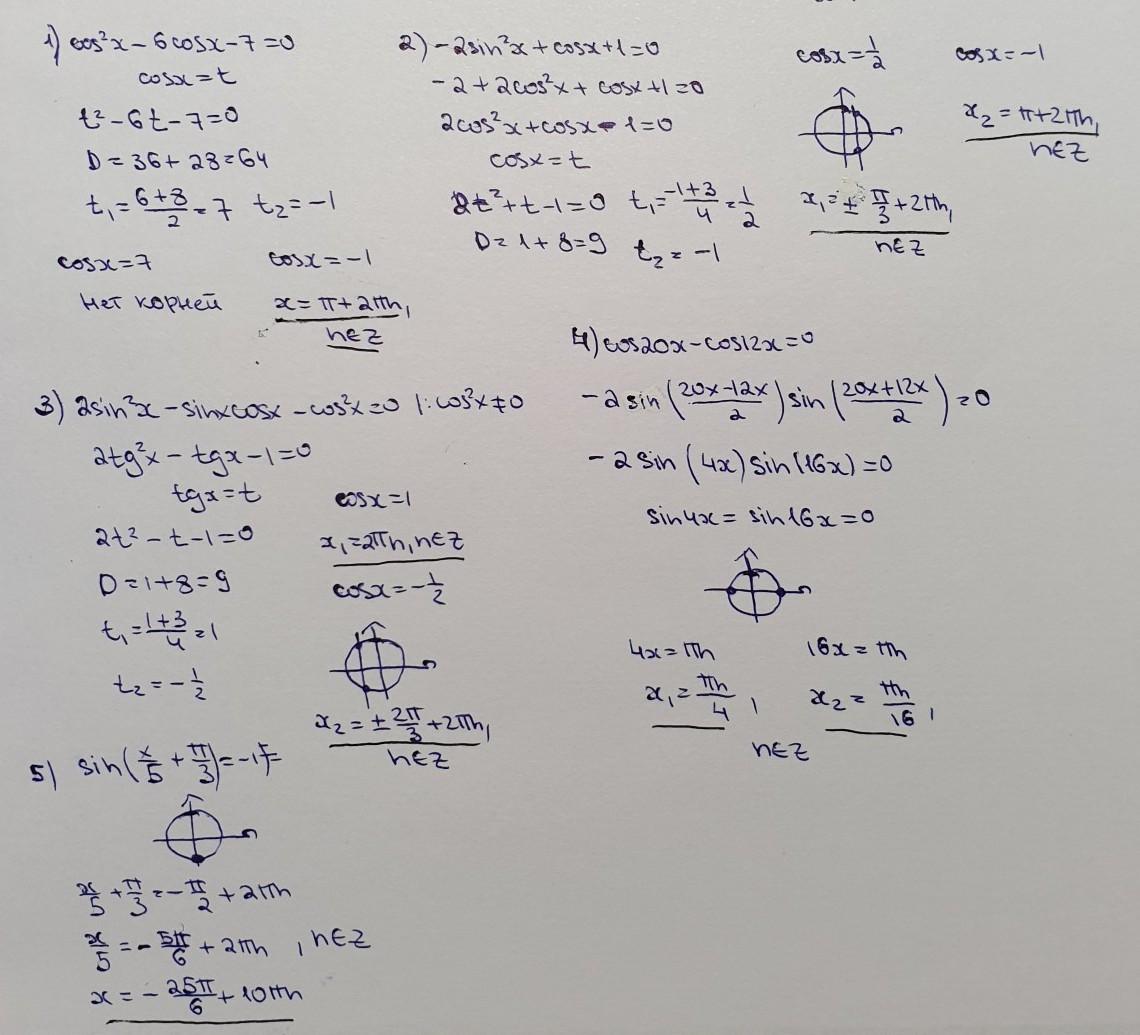 1) cos²x - 6cosx - 7 = 0
cosx = t
t² - 6t - 7 = 0
D = 36 + 28 = 64
t₁ = (6+8)/2 = 7 t₂ = -1
cosx = 7 cosx = -1
нет корней x = π + 2πn,
n∈Z
2) -2sin²x + cosx + 1 = 0
-2 + 2cos²x + cosx + 1 = 0
2cos²x + cosx - 1 = 0
cosx = t
2t² + t - 1 = 0 t₁ = (-1+3)/4 = 1/2
D = 1 + 8 = 9 t₂ = -1
cosx = 1/2 cosx = -1
x₂ = π + 2πn,
n∈Z
x₁ = ± π/3 + 2πn,
n∈Z
3) 2sin²x - sinxcosx - cos²x = 0 |: cos²x ≠ 0
2tg²x - tgx - 1 = 0
tgx = t
2t² - t - 1 = 0
D = 1 + 8 = 9
t₁ = (1+3)/4 = 1
t₂ = -1/2
cosx = 1
x₁ = 2πn, n∈Z
cosx = -1/2
x₂ = ± 2π/3 + 2πn,
n∈Z
4) cos20x - cos12x = 0
-2 sin ((20x-12x)/2) sin ((20x+12x)/2) = 0
-2 sin (4x) sin (16x) = 0
sin4x = sin16x = 0
4x = πn 16x = πn
x₁ = πn/4, x₂ = πn/16,
n∈Z
5) sin(x/5 + π/3) = -1
x/5 + π/3 = -π/2 + 2πn
x/5 = -5π/6 + 2πn, n∈Z
x = -25π/6 + 10πn